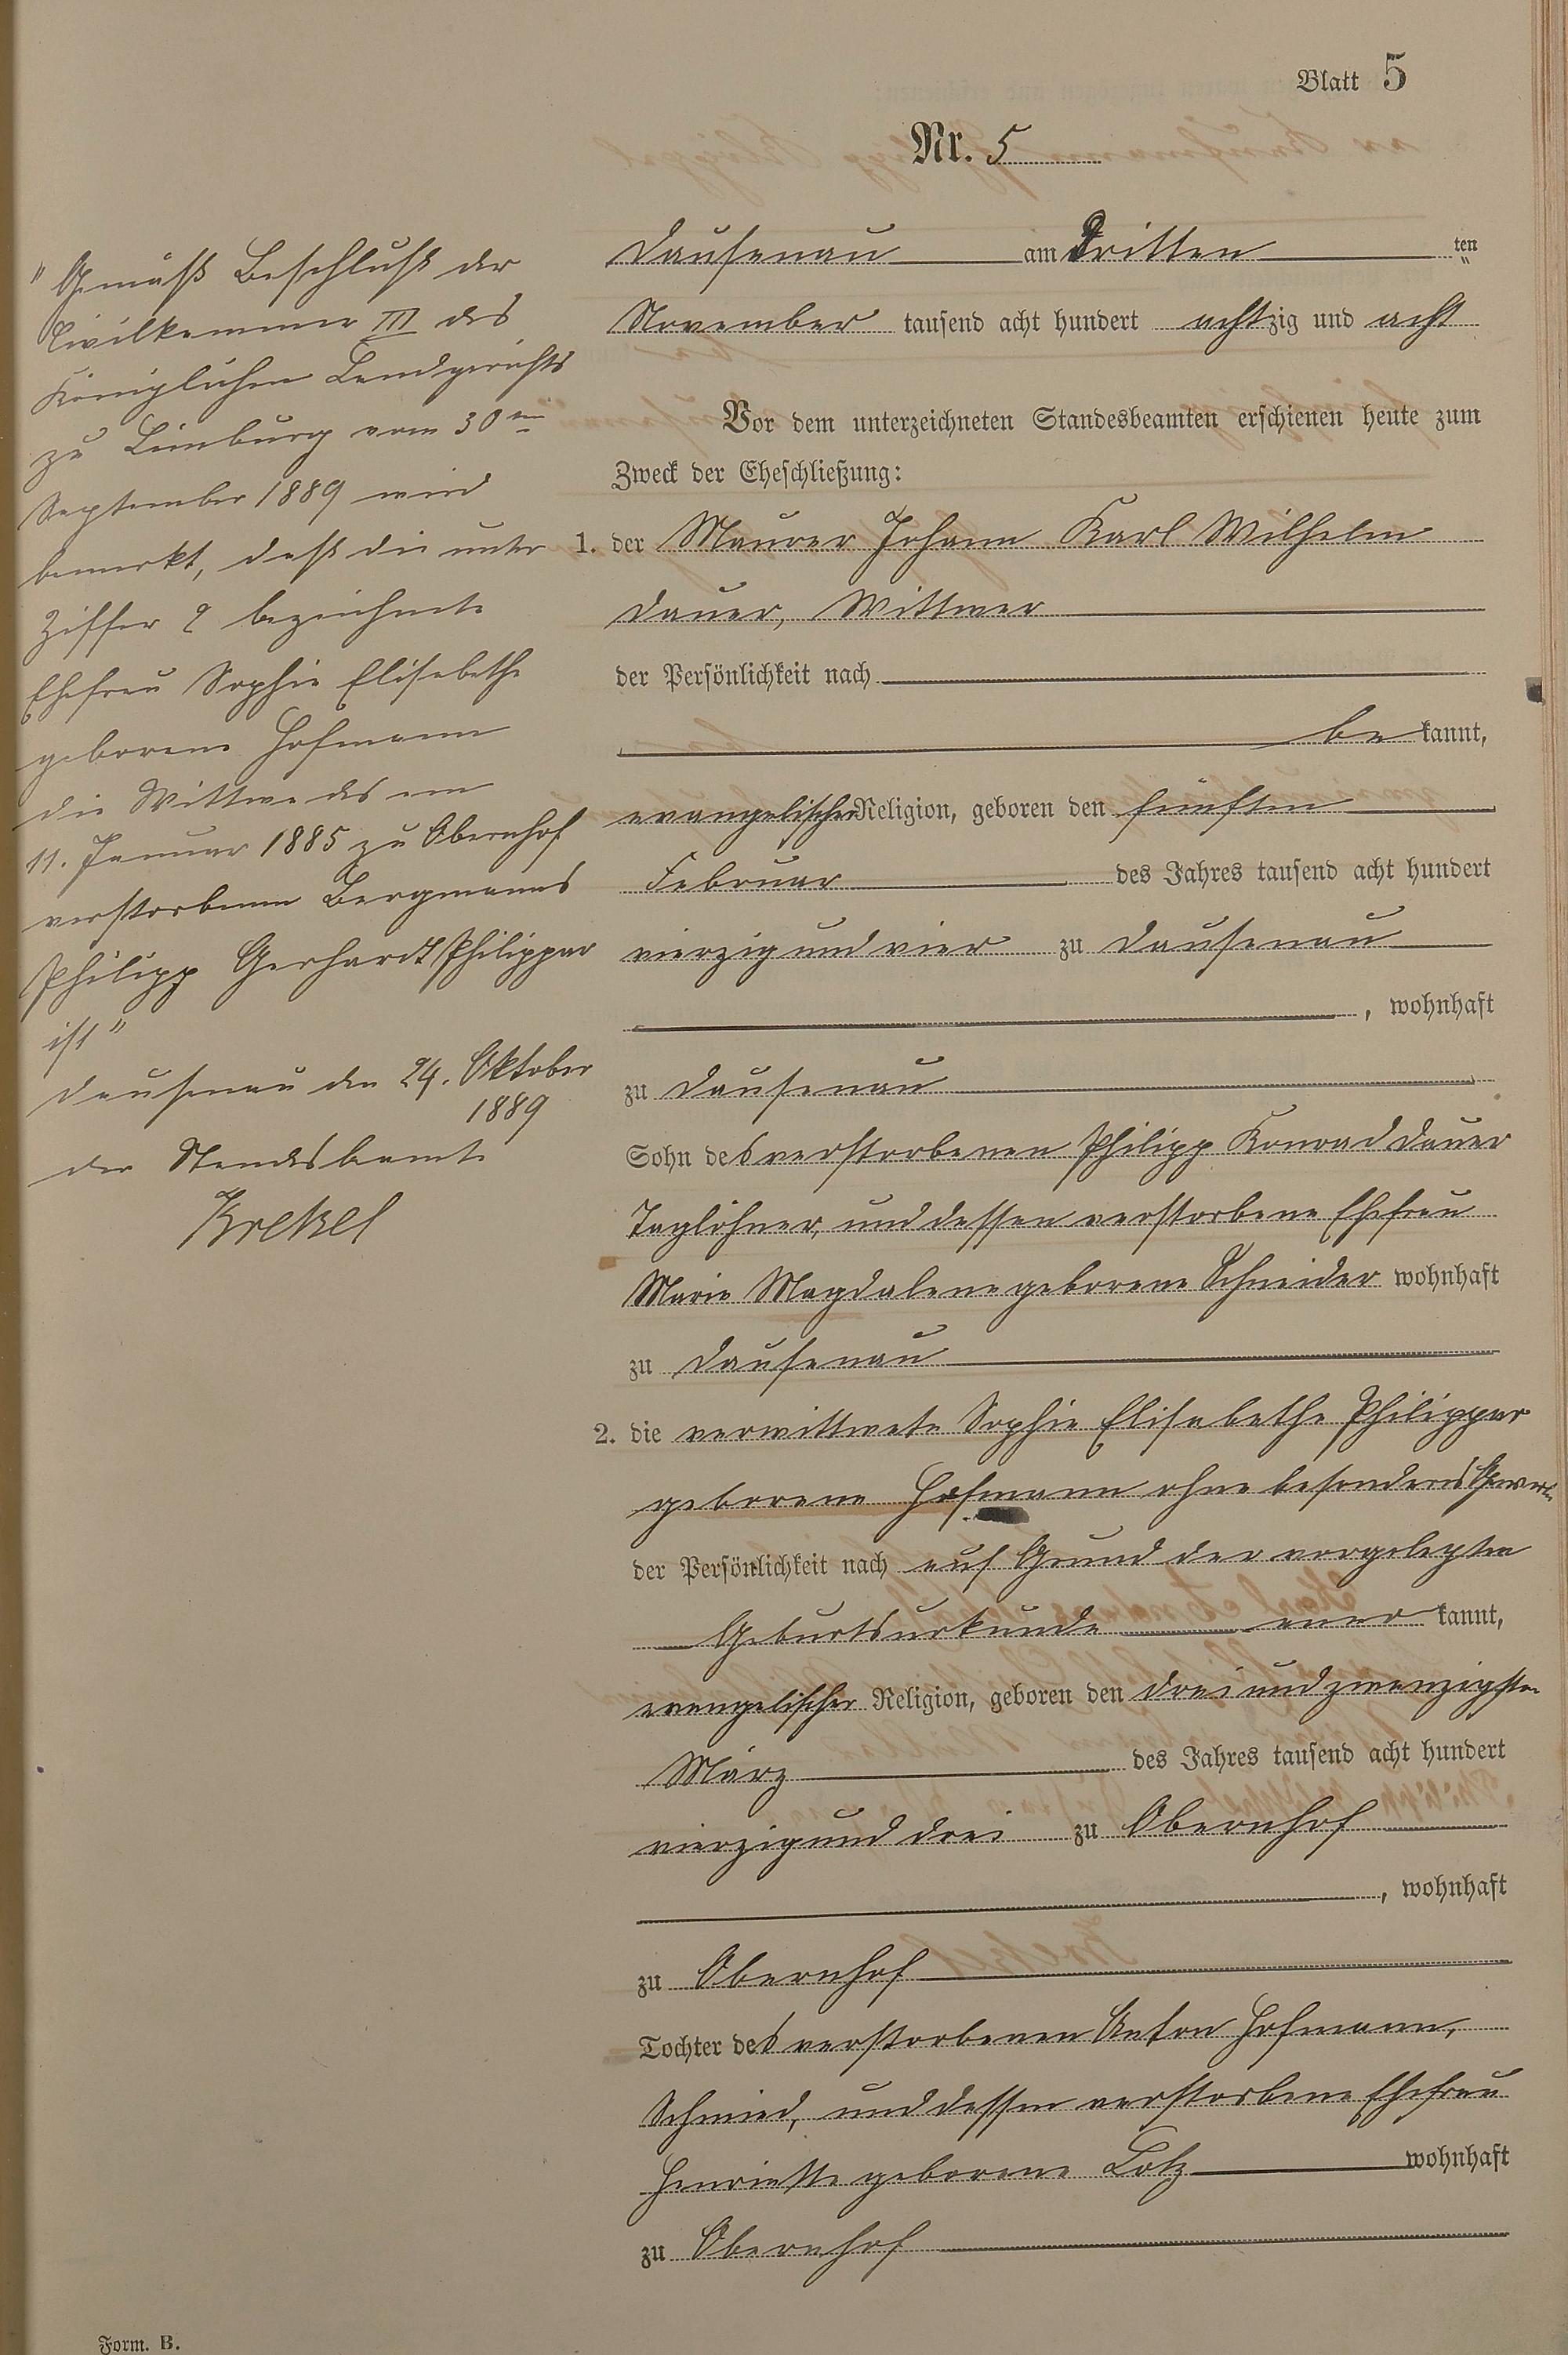 Blatt 5
Nr. 5
Dausenau am Dritten ten
November tausend acht hundert achtzig und acht
Vor dem unterzeichneten Standesbeamten erschienen heute zum
Zweck der Eheschließung:
1. der Maurer Johann Karl Wilhelm
Dauer, Wittwer
der Persönlichkeit nach
be kannt,
evangelischer Religion, geboren den fünften
Februar des Jahres tausend acht hundert
vierzig und vier zu Dausenau
, wohnhaft
zu Dausenau
Sohn des verstorbenen Philipp Konrad Dauer
Taglöhner, und dessen verstorbene Ehefrau
Marie Magdalene geborene Schneider wohnhaft
zu Dausenau
2. die verwittwete Sophie Elisabethe Philippar
geborene Hofmann ohne besonderes Gewerbe
der Persönlichkeit nach auf Grund der vorgelegten
Geburtsurkunde aner kannt,
evangelischer Religion, geboren den drei und zwanzigsten
März des Jahres tausend acht hundert
vierzig und drei zu Obernhof
, wohnhaft
zu Obernhof
Tochter des verstorbenen Anton Hofmann,
Schmied, und dessen verstorbene Ehefrau
Henriette geborene Lotz wohnhaft
zu Obernhof
"Gemäß Beschluß der
Civilkammer III des
Königlichen Landgerichts
zu Limburg vom 30ten
September 1889 wird
bemerkt, daß die unter
Ziffer 2 bezeichnete
Ehefrau Sophie Elisabethe
geborene Hofmann
die Wittwe des am
11. Januar 1885 zu Obernhof
verstorbenen Bergmanns
Philipp Gerhardt Philippar
ist"
Dausenau den 24. Oktober
1889
der Standesbeamte
Krekel
Form. B.